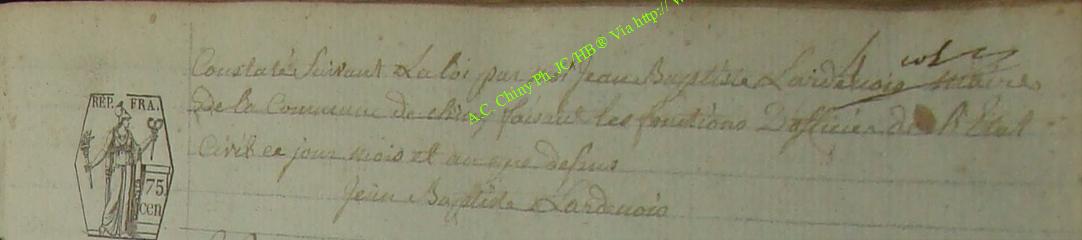 A.C. Chiny Ph. JC/HB® Via http://
Constaté Suivant La loi par moi Jean Baptiste Lardenois maire
de la Commune de chiny faisant les fonctions D'officier de l'Etat
Civil ce jour mois et an que desus
Jean Baptiste Lardenois
REP. FRA.
75
cen